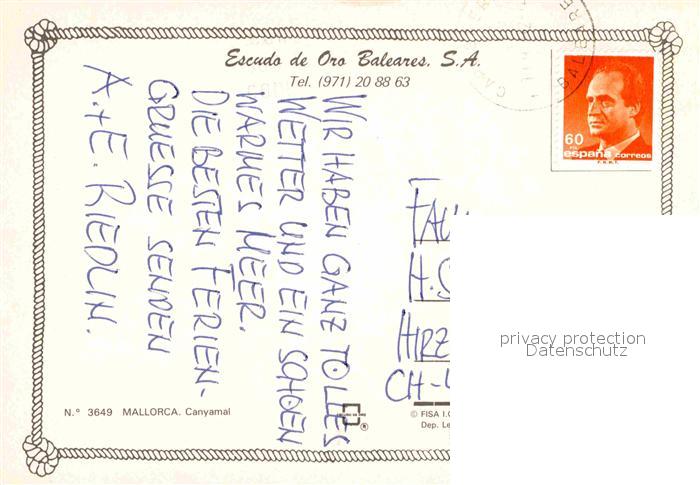 Escudo de Oro Baleares. S.A.
Tel. (971) 20 88 63
60
PTA
españa correos
F.N.M.T.
BALEARE
WIR HABEN GANZ TOLLES
WETTER UND EIN SCHOEN
WARMES MEER.
DIE BESTEN FERIEN-
GRUESSE SENDEN
A.+E. RIEDLIN.
H.S
HIRZ
CH-
privacy protection
Datenschutz
N.° 3649 MALLORCA. Canyamal
ESCUDO DE ORO
®
© FISA I.G
Dep. Le